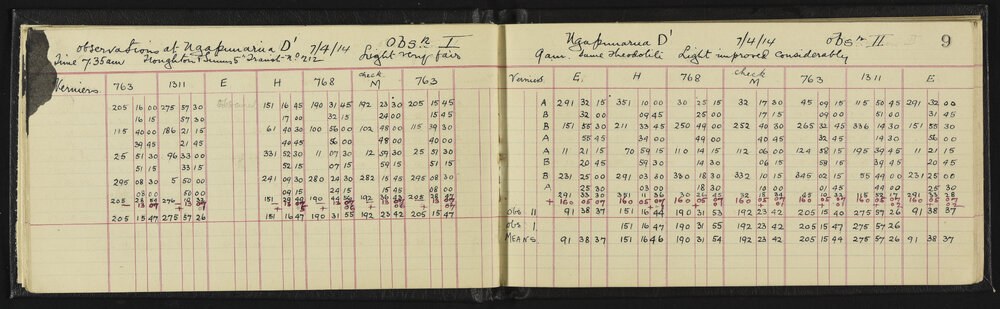 Observations at Ngapunarua D' 7/4/14 Obsn I
Time 7.35am Houghton & Simms 5" Transit No 212 Light very fair
Verniers 763 1311 E H 768 check M 763
205 16 00 275 57 30 151 16 45 190 31 45 192 23 30 205 15 45
16 15 57 30 17 00 32 15 24 00 15 45
115 40 00 186 21 15 61 40 30 100 56 00 102 48 00 115 39 30
39 45 21 45 40 45 56 00 48 00 40 00
25 51 30 96 33 00 331 52 30 11 07 30 12 59 30 25 51 30
51 15 33 15 52 15 07 15 59 15 51 15
295 08 30 5 50 00 241 09 30 280 24 30 282 15 45 295 08 30
08 00 50 00 09 15 24 15 15 45 08 00
205 15 47 275 57 26 151 16 47 190 31 55 192 23 42 205 15 47
Ngapunarua D' 7/4/14 Obsn II 9
9am. Same Theodolite Light improved considerably
Verniers E. H 768 check M 763 1311 E
A 291 32 15 351 10 00 30 25 15 32 17 30 45 09 15 115 50 45 291 32 00
B 32 00 09 45 25 00 17 15 09 00 51 00 31 45
B 151 55 30 211 33 45 250 49 00 252 40 30 265 32 45 336 14 30 151 55 30
A 55 00 34 00 49 00 40 45 32 45 14 30 56 00
A 11 21 15 70 59 15 110 14 15 112 06 00 124 58 15 195 39 45 11 21 15
B 20 45 59 30 14 30 06 15 58 15 39 45 20 45
B 231 25 00 291 03 00 330 18 30 332 10 15 345 02 15 55 44 00 231 25 00
A 25 30 03 00 18 30 10 00 01 45 44 00 25 30
+ 160 05 07
Obs II 91 38 37 151 16 44 190 31 53 192 23 42 205 15 40 275 57 26 91 38 37
Obs I. 151 16 47 190 31 55 192 23 42 205 15 47 275 57 26
MEANS 91 38 37 151 16 46 190 31 54 192 23 42 205 15 44 275 57 26 91 38 37